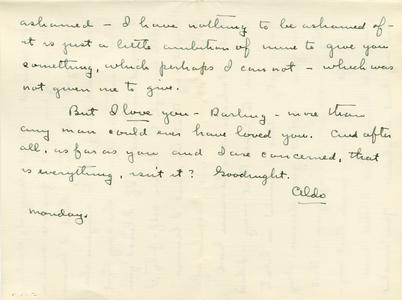 ashamed - I have nothing to be ashamed of -
it is just a little ambition of mine to give you
something, which perhaps I can not - which was
not given me to give.
But I love you - Darling - more than
any man could ever have loved you. And after
all, as far as you and I are concerned, that
is everything, isn't it? Goodnight.
Aldo
Monday.